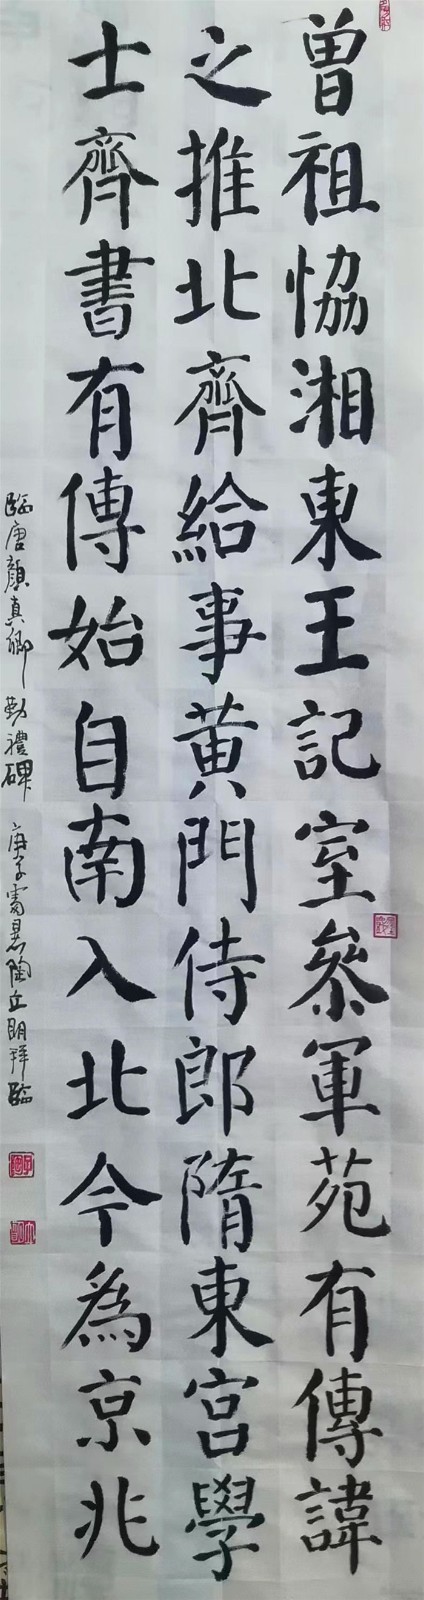 曾祖恊湘東王記室參軍苑有傳諱
之推北齊給事黄門侍郎隋東宮學
士齊書有傳始自南入北今為京兆
臨唐顏真卿勤禮碑 庚子
陶立明拜臨